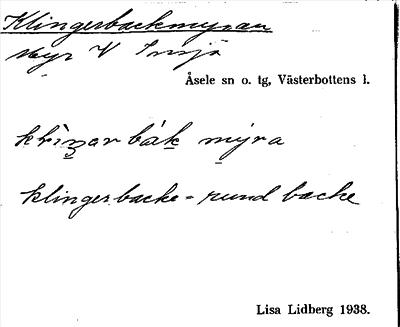 Klingerbackmyran
Myr V Insjö
Åsele sn o. tg, Västerbottens l.
bak myra
klingerbacke = rund backe
Lisa Lidberg 1938.